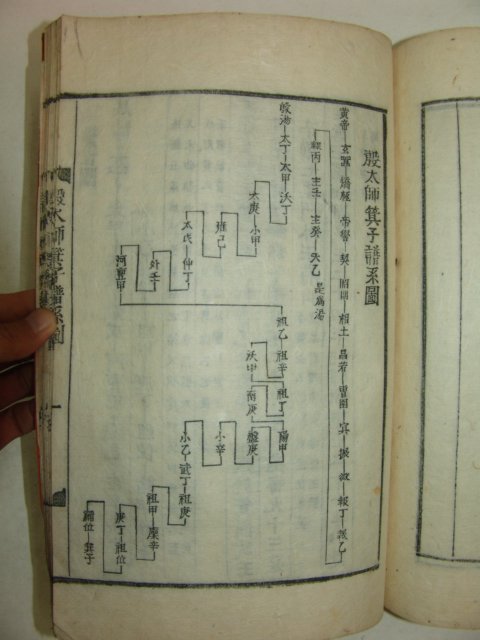 殷太師箕子譜系圖
黃帝 玄囂 蟜極 帝嚳 契 昭明 相土 昌若 曹圉 冥 振 微 報丁 報乙
報丙 主壬 主癸 天乙 是爲湯
成湯 太丁 太甲 沃丁
太庚 小甲
雍己
太戊 仲丁
外壬
河亶甲
祖乙 祖辛
沃甲 祖丁
南庚
陽甲
盤庚
小辛
小乙 武丁 祖庚
祖甲 廩辛
庚丁 祖位
箕子
殷太師箕子譜系圖
一